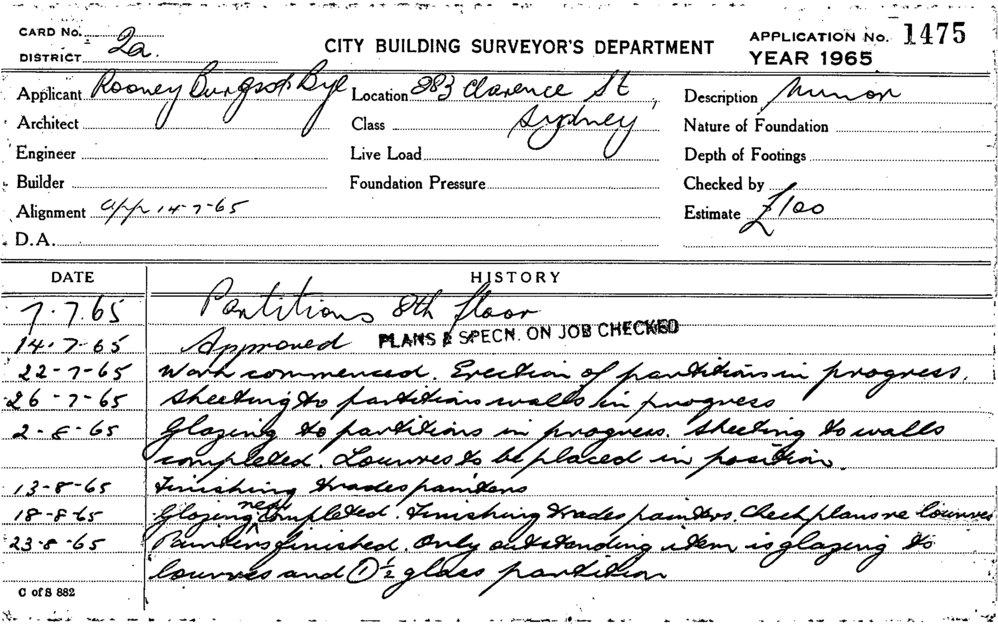 CARD No.
DISTRICT 2a.
CITY BUILDING SURVEYOR'S DEPARTMENT
APPLICATION No. 1475
YEAR 1965
Applicant Rooney Bye Location 283 Clarence St, Description Minor
Architect Class Sydney Nature of Foundation
Engineer Live Load Depth of Footings
Builder Foundation Pressure Checked by
Alignment app 14-7-65 Estimate £100
D.A.
DATE HISTORY
7.7.65 Partitions 8th floor
14.7-65 Approved PLANS & SPECN. ON JOB CHECKED
22-7-65 Work commenced. Erection of partitions in progress.
26-7-65 Sheeting to partition walls in progress
2-8-65 Glazing to partitions in progress. Sheeting to walls
completed. Louvres to be placed in position.
13-8-65 Finishing trades painters
18-8-65 Glazing near completed. Finishing trades painters. Check plans re louvres
23-8-65 Painters finished. Only outstanding item is glazing to
louvres and ① ½ glass partition
C of S 882